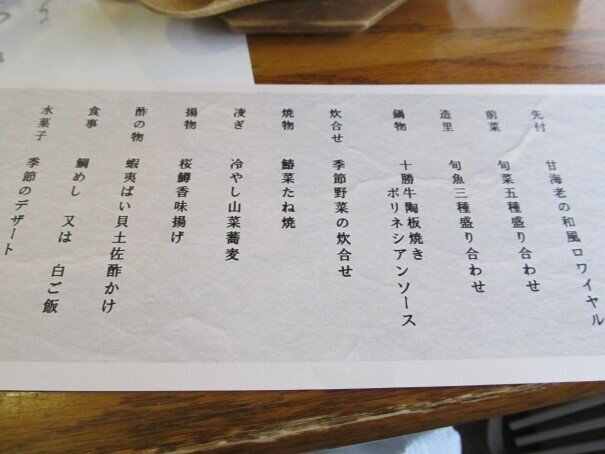 先付　甘海老の和風ロワイヤル
前菜　旬菜五種盛り合わせ
造里　旬魚三種盛り合わせ
鍋物　十勝牛陶板焼き
ポリネシアンソース
炊合せ　季節野菜の炊合せ
焼物　鰆菜たね焼
凌ぎ　冷やし山菜蕎麦
揚物　桜鱒香味揚げ
酢の物　蝦夷ばい貝土佐酢かけ
食事　鯛めし　又は　白ご飯
水菓子　季節のデザート